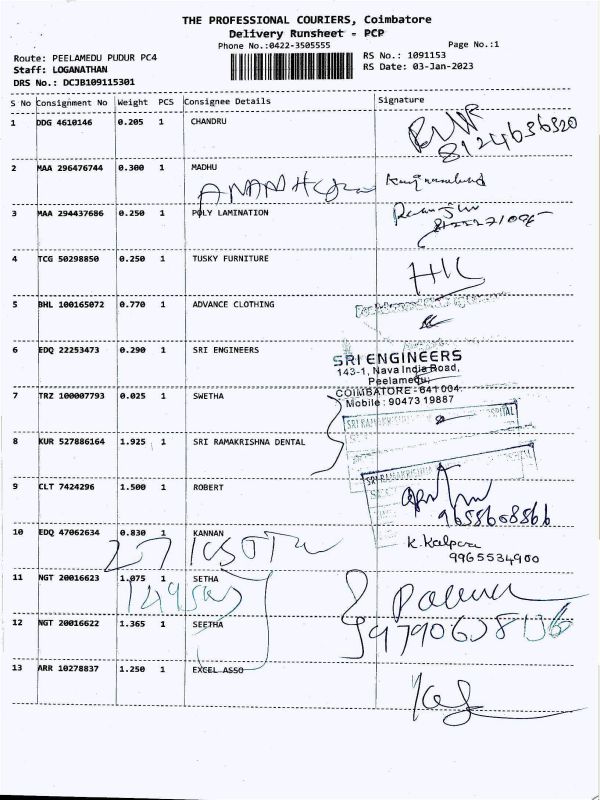 THE PROFESSIONAL COURIERS, Coimbatore
Delivery Runsheet - PCP
Phone No.:0422-3505555
Page No.:1
Route: PEELAMEDU PUDUR PC4
RS No.: 1091153
Staff: LOGANATHAN
RS Date: 03-Jan-2023
DRS No.: DCJB109115301
S No Consignment No Weight PCS Consignee Details Signature
1 DDG 4610146 0.205 1 CHANDRU
8124636320
2 MAA 296476744 0.300 1 MADHU
3 MAA 294437686 0.250 1 POLY LAMINATION
4 TCG 50298850 0.250 1 TUSKY FURNITURE
5 BHL 100165072 0.770 1 ADVANCE CLOTHING
6 EDQ 22253473 0.290 1 SRI ENGINEERS
SRI ENGINEERS
143-1, Nava India Road,
Peelamedu,
COIMBATORE - 641 004.
Mobile : 90473 19887
7 TRZ 100007793 0.025 1 SWETHA
8 KUR 527886164 1.925 1 SRI RAMAKRISHNA DENTAL
9 CLT 7424296 1.500 1 ROBERT
9658608566
10 EDQ 47062634 0.830 1 KANNAN
K. Kalpana
9965534900
11 NGT 20016623 1.075 1 SETHA
12 NGT 20016622 1.365 1 SEETHA
13 ARR 10278837 1.250 1 EXCEL ASSO